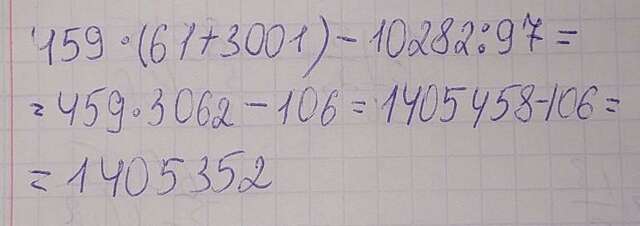 459·(61+3001)-10282:97=
=459·3062-106=1405458-106=
=1405352